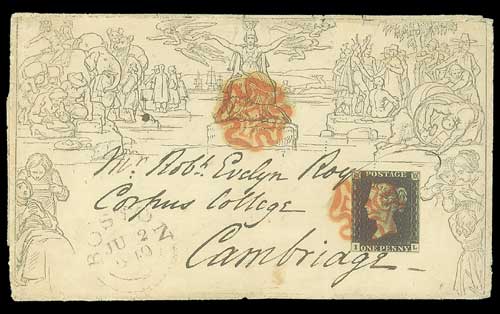 Mr Robt. Evelyn Roy
Corpus College
Cambridge
POSTAGE
ONE PENNY
I L
JU 2